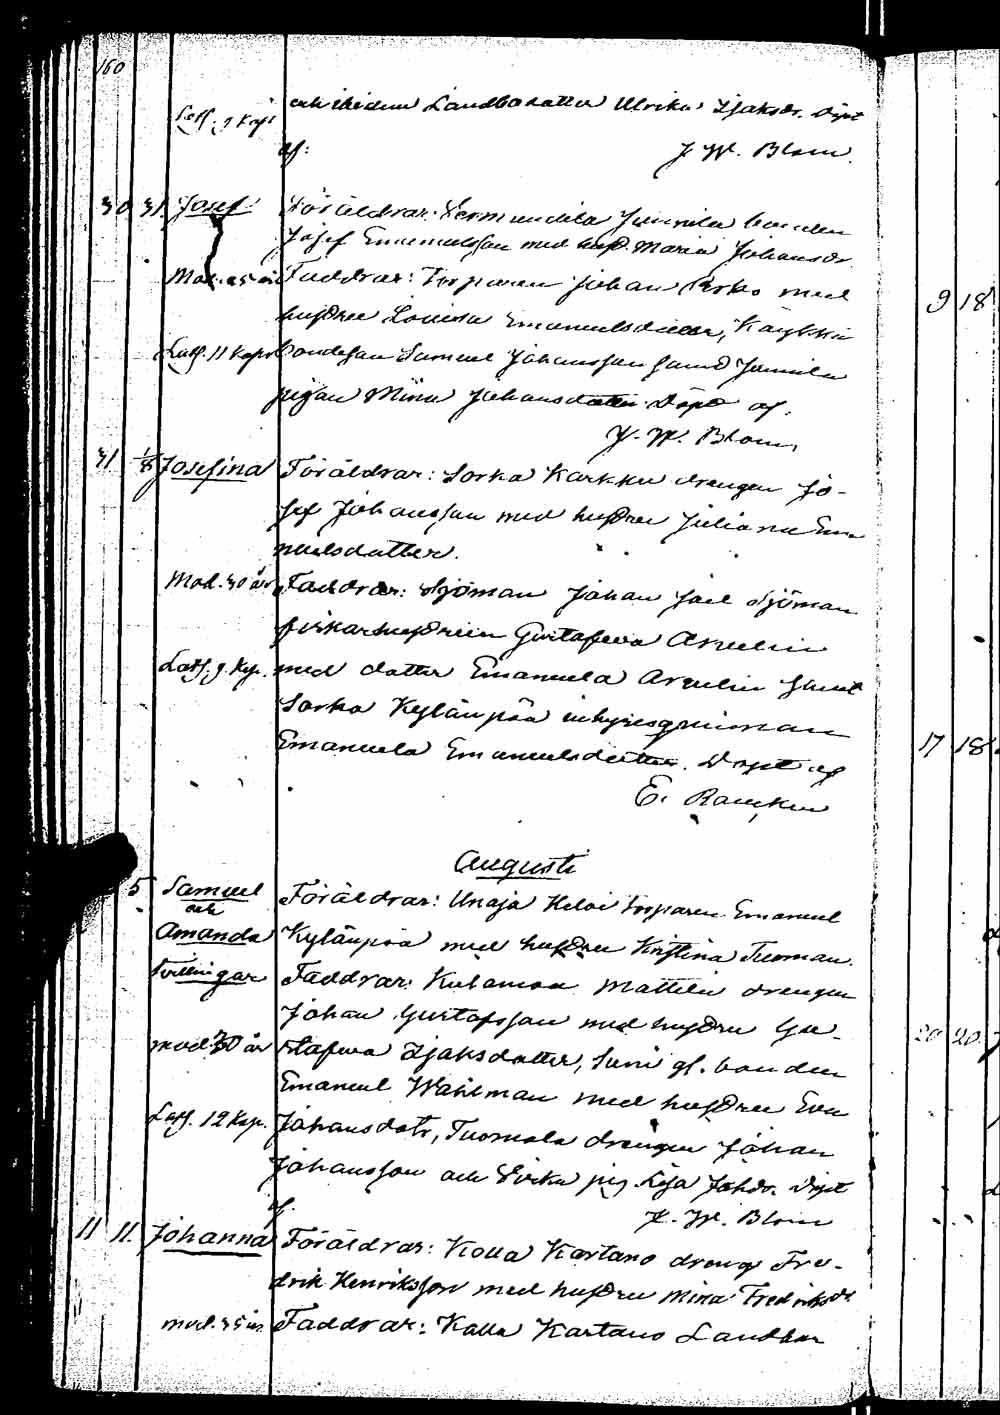 160
och Landbodotter Ulrika Isaksdr. Döpt
af: J. W. Blom.
30 31. Josef Föräldrar: Junnila bonden
Josef Emanuelsson med hust. Maria Johansdr.
Mod. 25 år Faddrar: Torparen Johan med
hustru Lovisa Emanuelsdotter,
11 Kap. bondeson Samuel Johansson samt Junnila
pigan Mina Johansdotter. Döpt af.
J. W. Blom.
31 1/8 Josefina Föräldrar: Sorka Karkku drengen Jo-
sef Johansson med hustru Juliana Ema
nuelsdotter.
Mod. 30 år Faddrar: Sjöman Johan Joel Sjöman
Gustafva Arvelin
9 Kap. med dotter Emanuela Arvelin samt
Sorka Kylänpää inhyresqvinnan
Emanuela Emanuelsdotter. Döpt af
E.
Augusti
5 Samuel Föräldrar: Unaja Heloi torparen Emanuel
och
Amanda Kylänpää med hustru Kristina Tuoman.
Tvillingar Faddrar: Kulamaa Mattila drengen
Johan Gustafsson med hustru Gu-
mod. 30 år stafva Isaksdotter, Suni gl. bonden
Emanuel Wahlman med hustru Eva
12 Kap. Johansdotr, Tuomola drengen Johan
Johansson och pig. Lisa Johdr. Döpt
af. J. W. Blom
11 11. Johanna Föräldrar: Kolla Kartano dreng Fre-
drik Henriksson med hustru Mina Fredriksdr
mod. 35 år Faddrar: Kolla Kartano Landbon
9 18
17 18
20 20